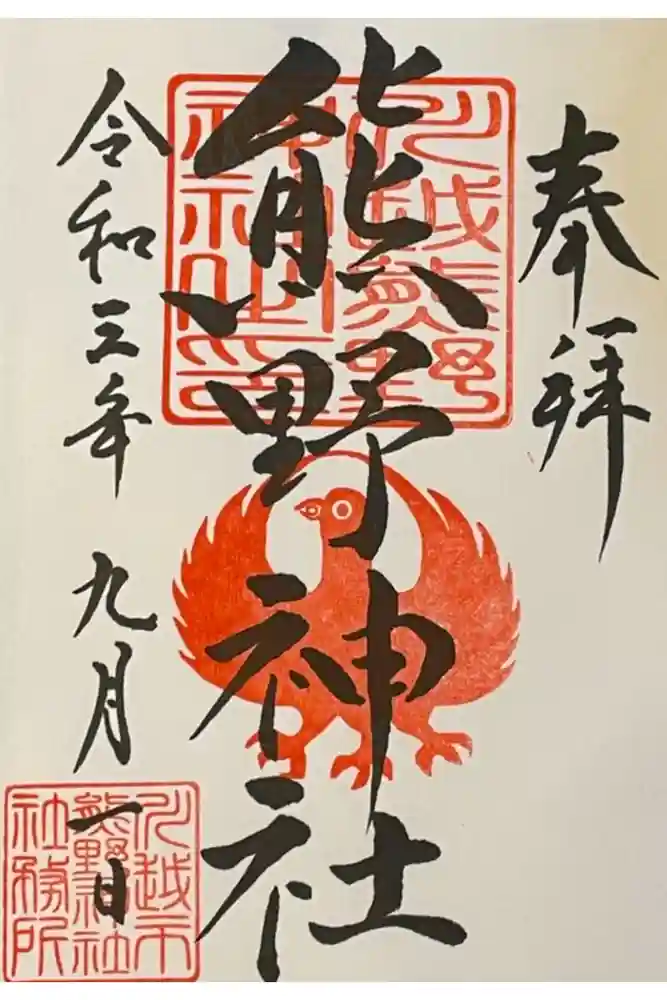 奉拝
熊野神社
川越熊野
神社之印
令和三年九月一日
川越市
熊野神社
社務所